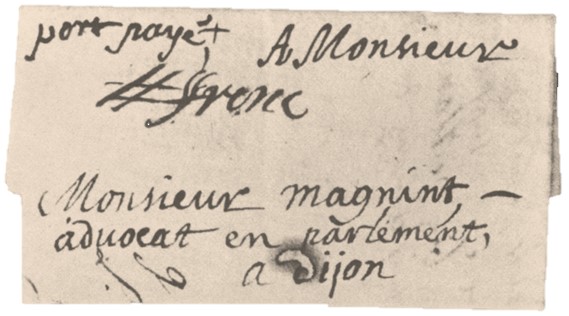 port payé A Monsieur
franc
Monsieur magnint
advocat en parlement,
a Dijon